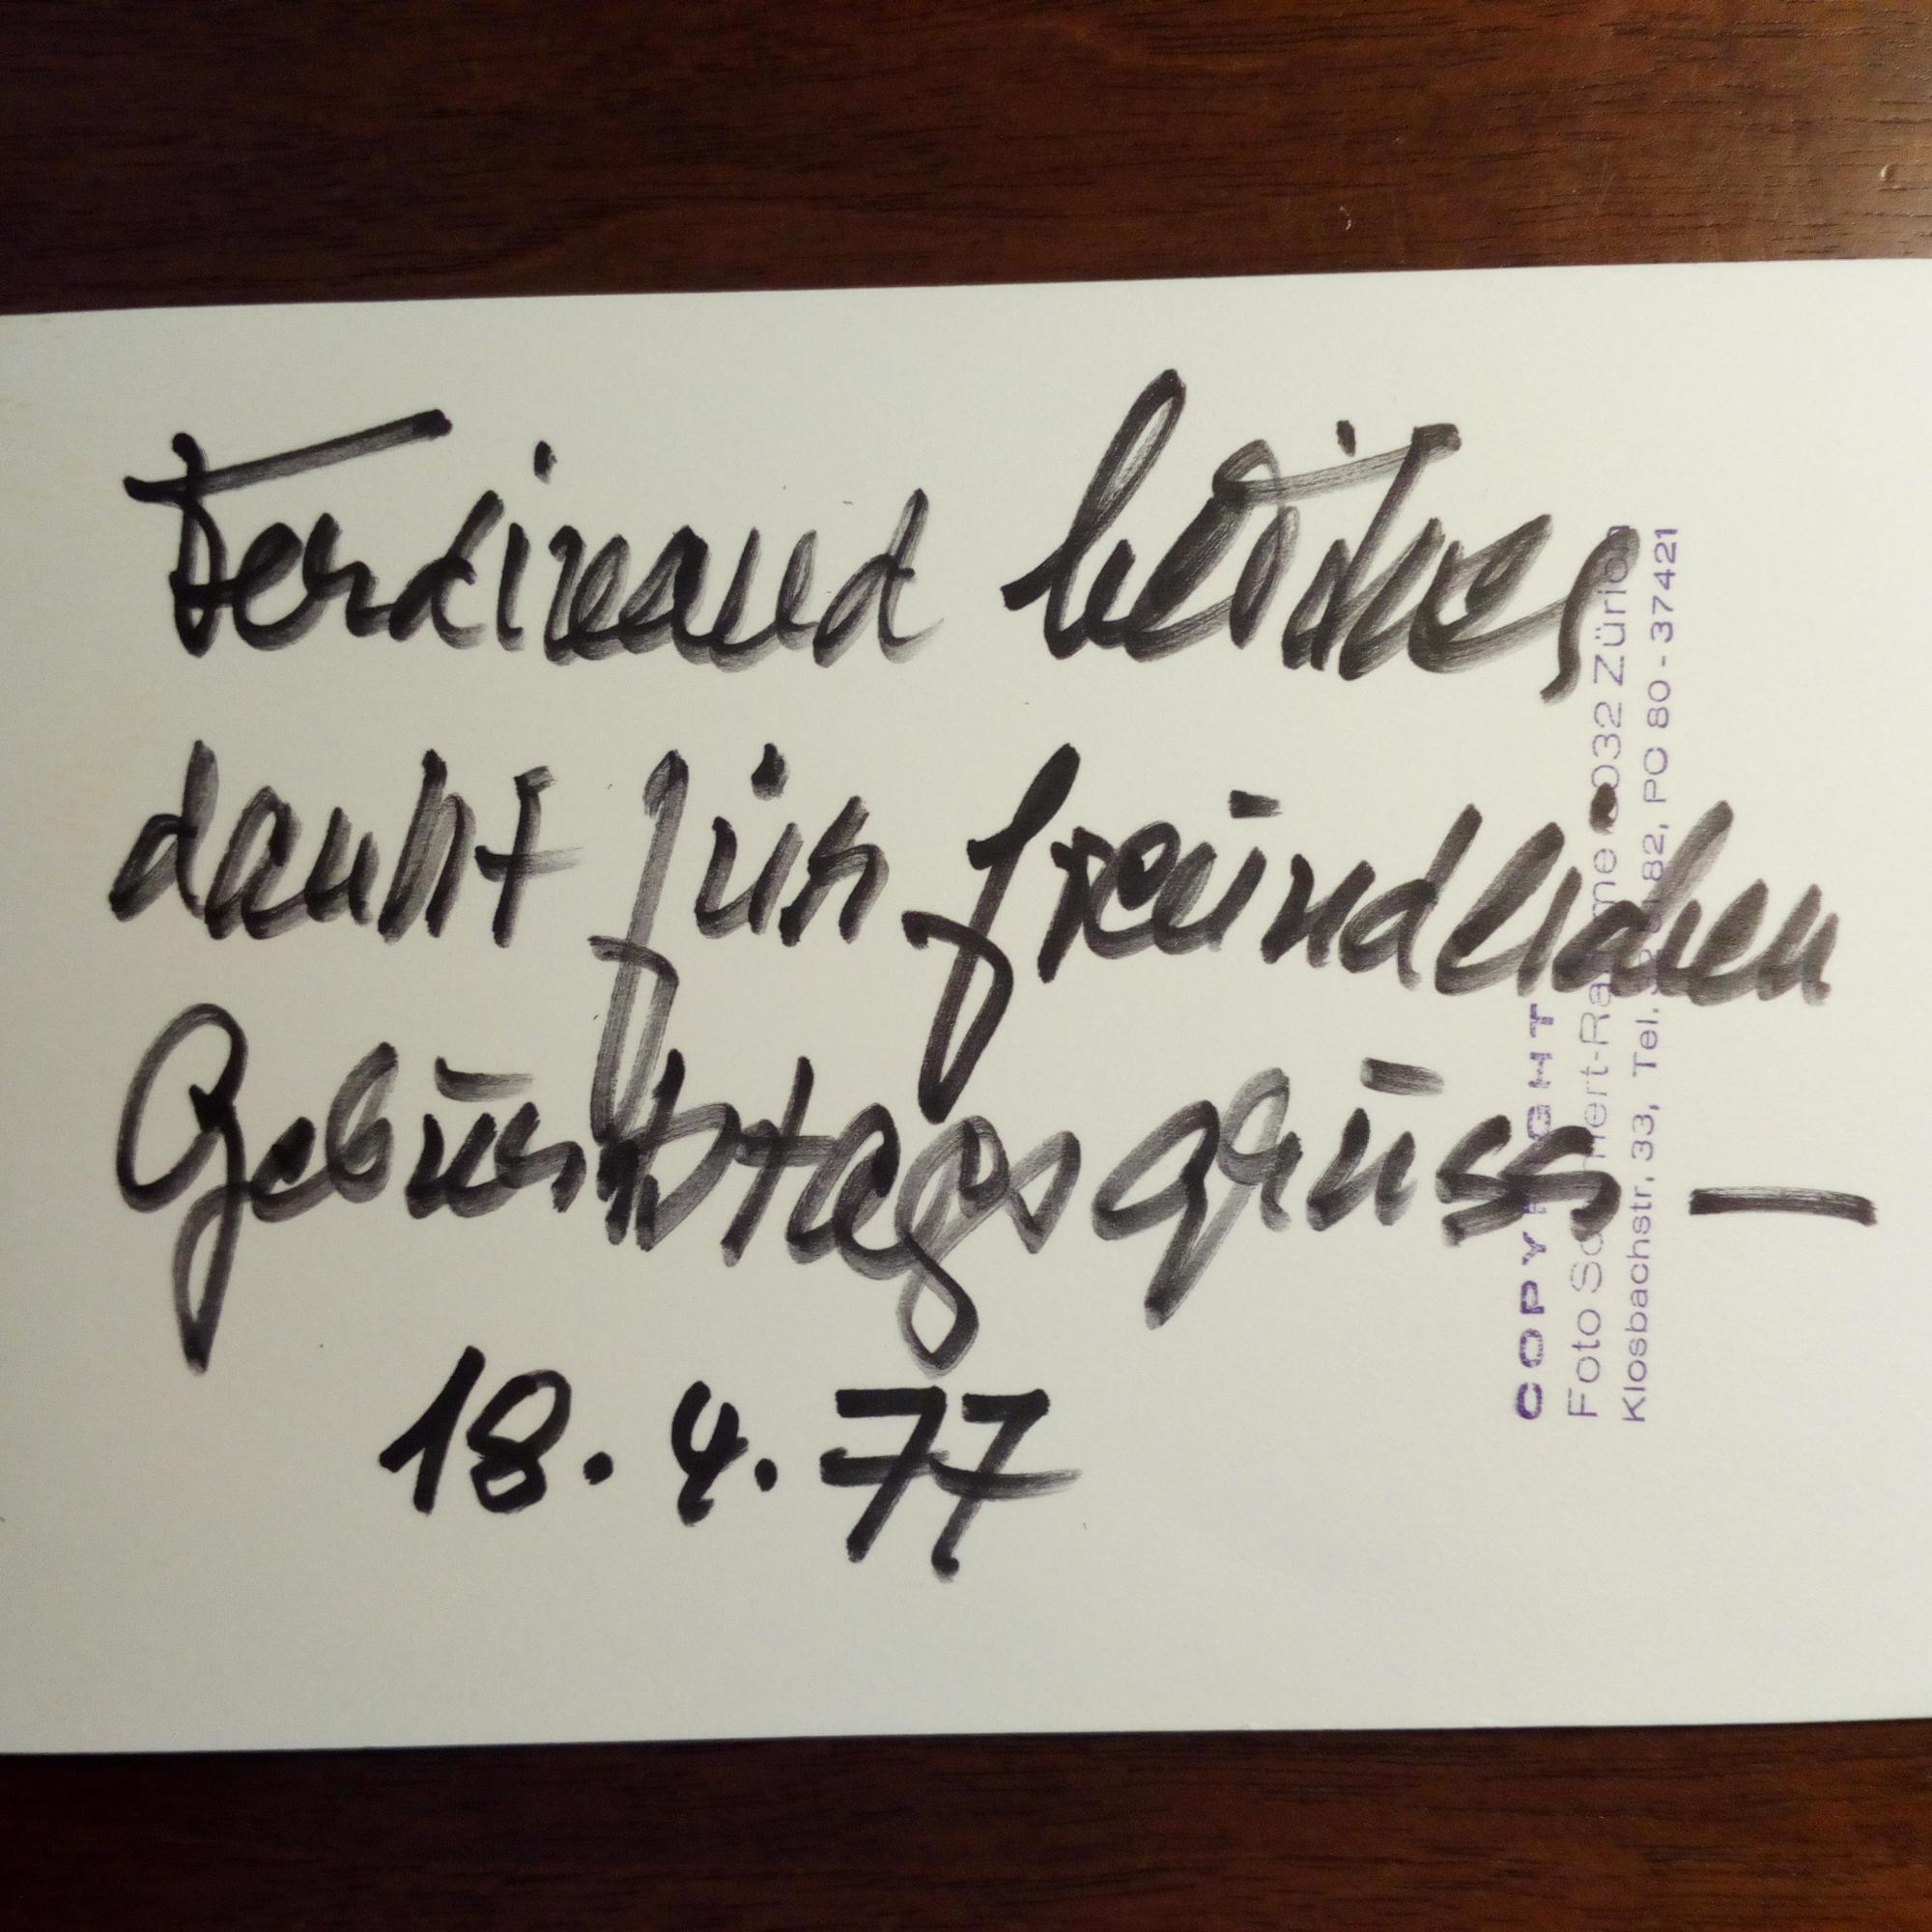 Ferdinand Leitner
dankt für freundlichen
Geburtstagsgruss —
18.4.77
COPYRIGHT
Foto Schimert-Ramme 8032 Zürich
Klosbachstr. 33, Tel. 82, PC 80 - 37421